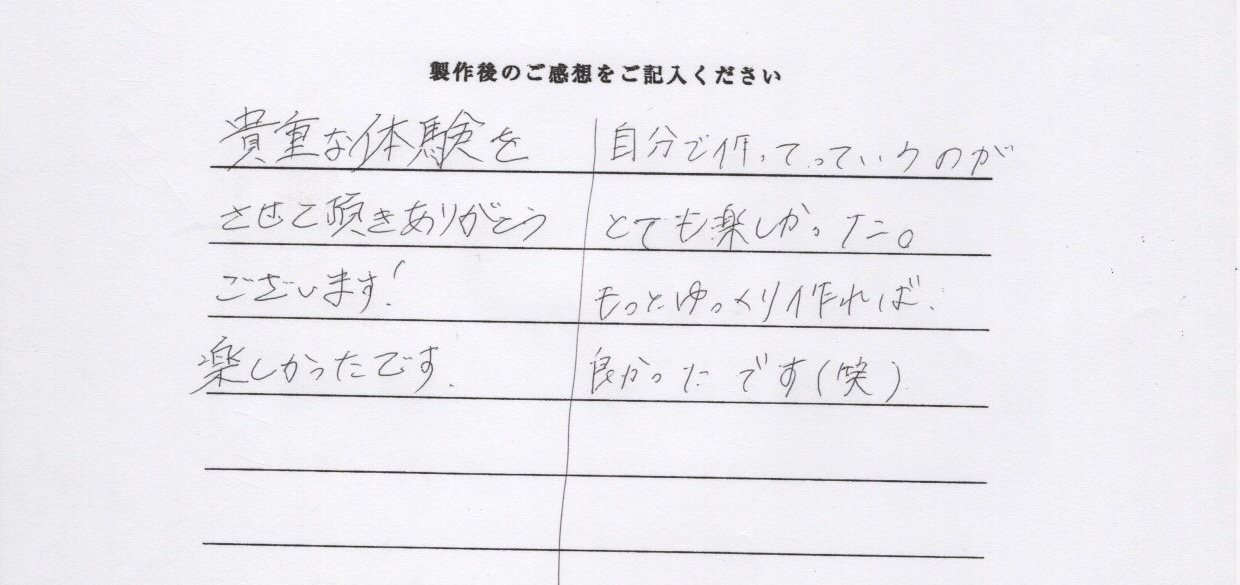 製作後のご感想をご記入ください
貴重な体験を
させて頂きありがとう
ございます!
楽しかったです.
自分で作ってっていうのが
とても楽しかった。
もっとゆっくり作れば、
良かったです(笑)